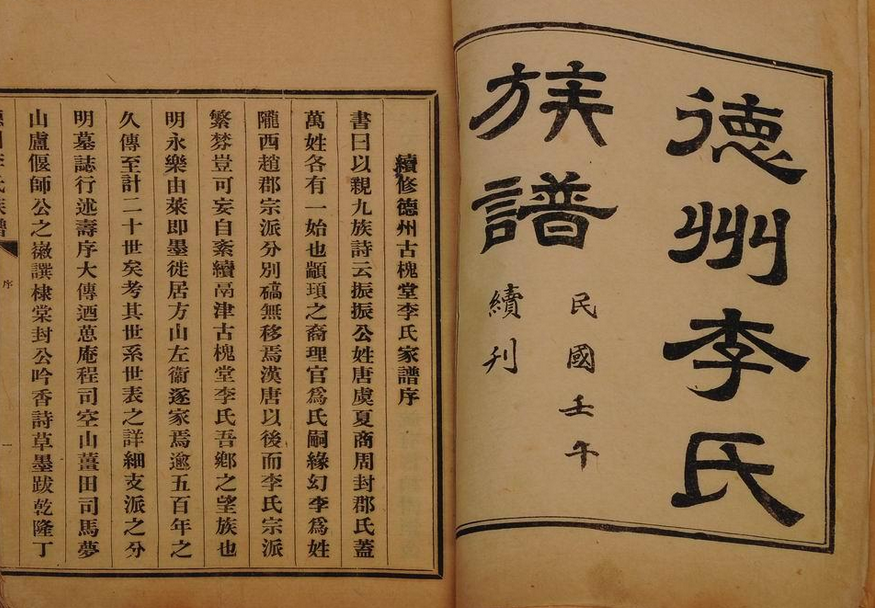 德州李氏
族譜
民國壬午
續刊
續修德州古槐堂李氏家譜序
書曰以親九族詩云振振公姓唐虞夏商周封郡氏蓋
萬姓各有一始也顓頊之裔理官爲氏嗣緣幻李爲姓
隴西趙郡宗派分別碻無移焉漢唐以後而李氏宗派
繁棼豈可妄自紊續鬲津古槐堂李氏吾鄉之望族也
明永樂由萊即墨徙居方山左衞遂家焉逾五百年之
久傳至計二十世矣考其世系世表之詳細支派之分
明墓誌行述壽序大傳迺蒽庵程司空山薑田司馬夢
山盧偃師公之撰棣棠封公吟香詩草墨跋乾隆丁
德州李氏族譜
序
一